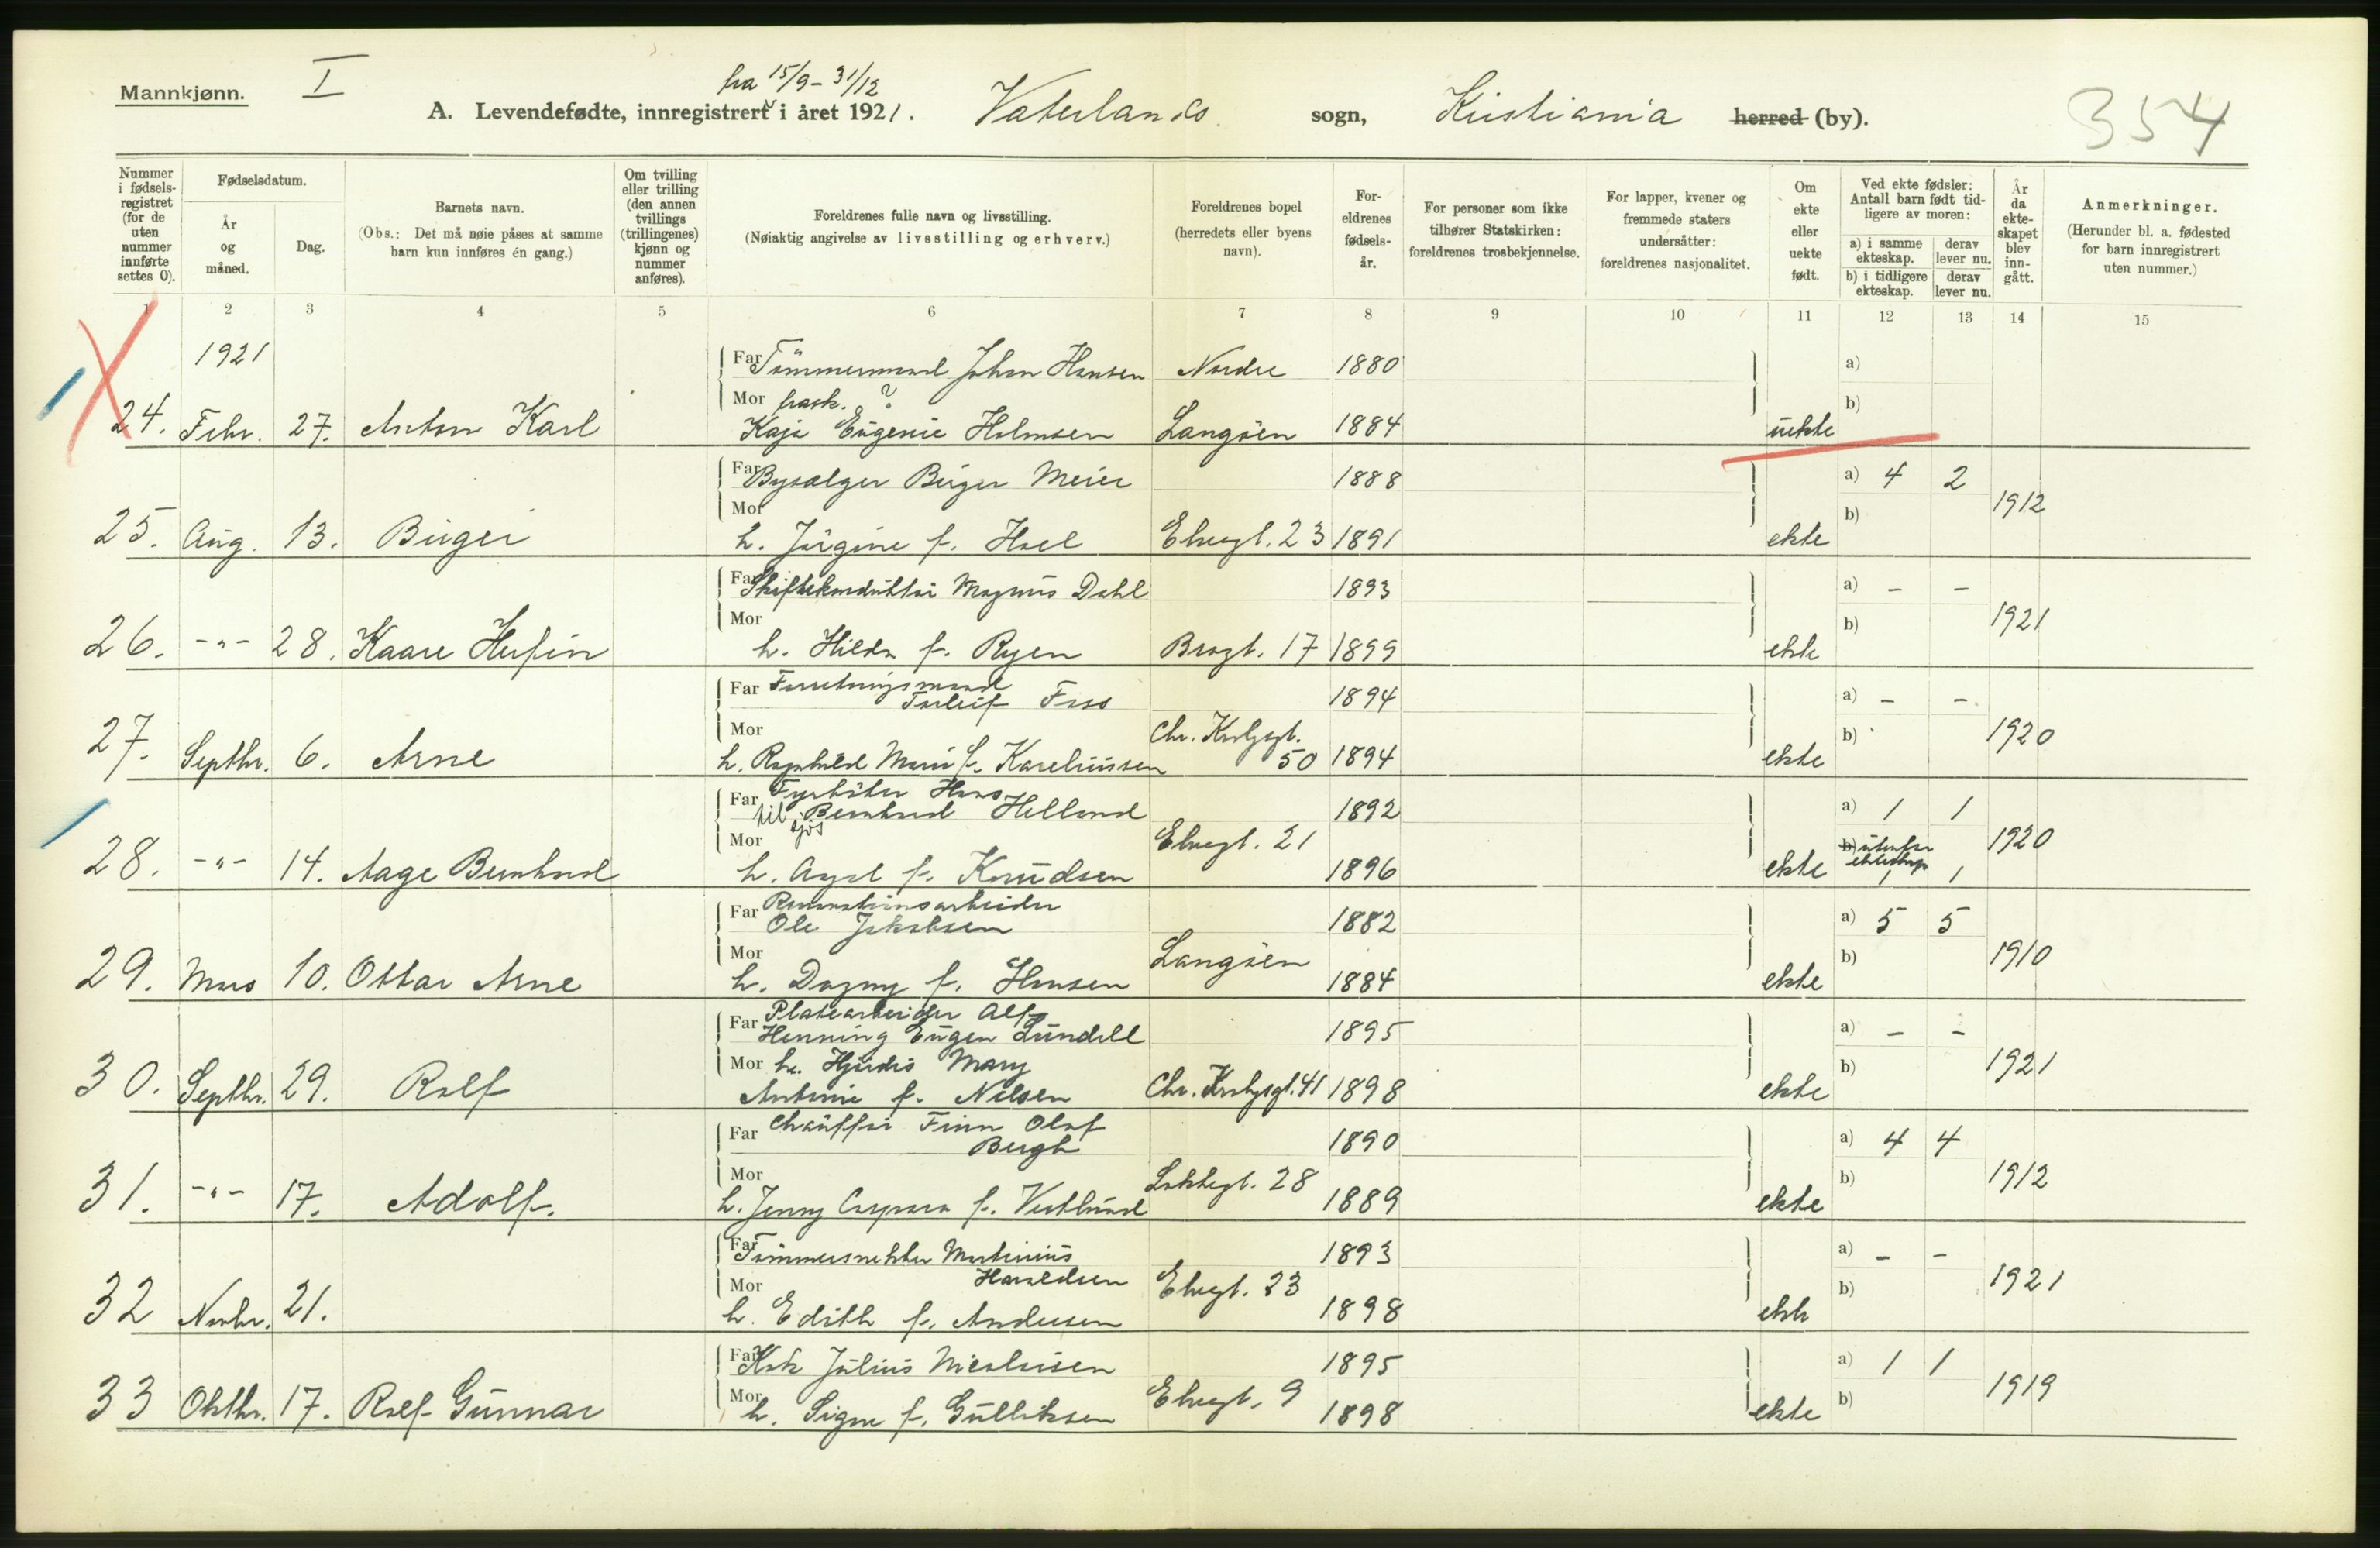 Mannkjønn. I
fra 15/9 - 31/12
A. Levendefødte, innregistrert i året 1921. Vaterlands sogn, Kristiania herred (by). 354
Nummer i fødsels-registret (for de uten nummer innførte settes 0).
Fødselsdatum.
År og måned.
Dag.
Barnets navn.
(Obs.: Det må nøie påses at samme barn kun innføres én gang.)
Om tvilling eller trilling (den annen tvillings (trillingenes) kjønn og nummer anføres).
Foreldrenes fulle navn og livsstilling.
(Nøiaktig angivelse av livsstilling og erhverv.)
Foreldrenes bopel (herredets eller byens navn).
For-eldrenes fødsels-år.
For personer som ikke tilhører Statskirken: foreldrenes trosbekjennelse.
For lapper, kvener og fremmede staters undersåtter: foreldrenes nasjonalitet.
Om ekte eller uekte født.
Ved ekte fødsler: Antall barn født tid-ligere av moren:
a) i samme ekteskap. derav lever nu.
b) i tidligere ekteskap. derav lever nu.
År da ekte-skapet blev inn-gått.
Anmerkninger.
(Herunder bl. a. fødested for barn innregistrert uten nummer.)
1 2 3 4 5 6 7 8 9 10 11 12 13 14 15
1921 Far Tömmermand Johan Hansen Nordre 1880 a)
Mor frask. ? b)
24. Febr. 27. Anton Karl Kaja Eugenie Holmsen Langöen 1884 uekte
Far Bysælger Birger Meier 1888 a) 4 2
Mor b) 1912
25. Aug. 13. Birger h. Jörgine f. Hoel Elvegt. 23 1891 ekte
Far Skiftekonduktör Magnus Dahl 1893 a) - -
Mor b) 1921
26. -"- 28. Kaare h. Hilda f. Ryen Brogt. 17 1899 ekte
Far Forretningsmand Torleif Foss 1894 a) - -
Mor Chr. Krohgsgt. b) 1920
27. Septbr. 6. Arne h. Ragnhild Marie f. Kareliussen 50 1894 ekte
Far Fyrböter Hans
til sjös Bernhard Helland 1892 a) 1 1
Mor Elvegt. 21 b) utenfor ekteskap 1 1 1920
28. -"- 14. Aage Bernhard h. Aasel f. Knudsen 1896 ekte
Far Renovationsarbeider
Ole Jakobsen 1882 a) 5 5
Mor Langöen b) 1910
29. Mars 10. Ottar Arne h. Dagny f. Hansen 1884 ekte
Far Platearbeider Alf
Henning Eugen Lundell 1895 a) - -
Mor h. Hjördis Mary b) 1921
30. Septbr. 29. Rolf Antonie f. Nilsen Chr. Krohgsgt. 41 1898 ekte
Far Chauffør Finn Olaf
Bergh 1890 a) 4 4
Mor Lakkegt. 28 b) 1912
31. -"- 17. Adolf. h. Jenny Caspara f. Vestlund 1889 ekte
Far Tömmersnekker Martinius 1893 a) - -
Mor Haraldsen Elvegt. 23 b) 1921
32 Novbr. 21. h. Edith f. Andersen 1898 ekte
Far Kok Julius Nicolaisen 1895 a) 1 1
Mor Elvegt. 9 b) 1919
33 Oktbr. 17. Rolf Gunnar h. Signe f. Gulliksen 1898 ekte